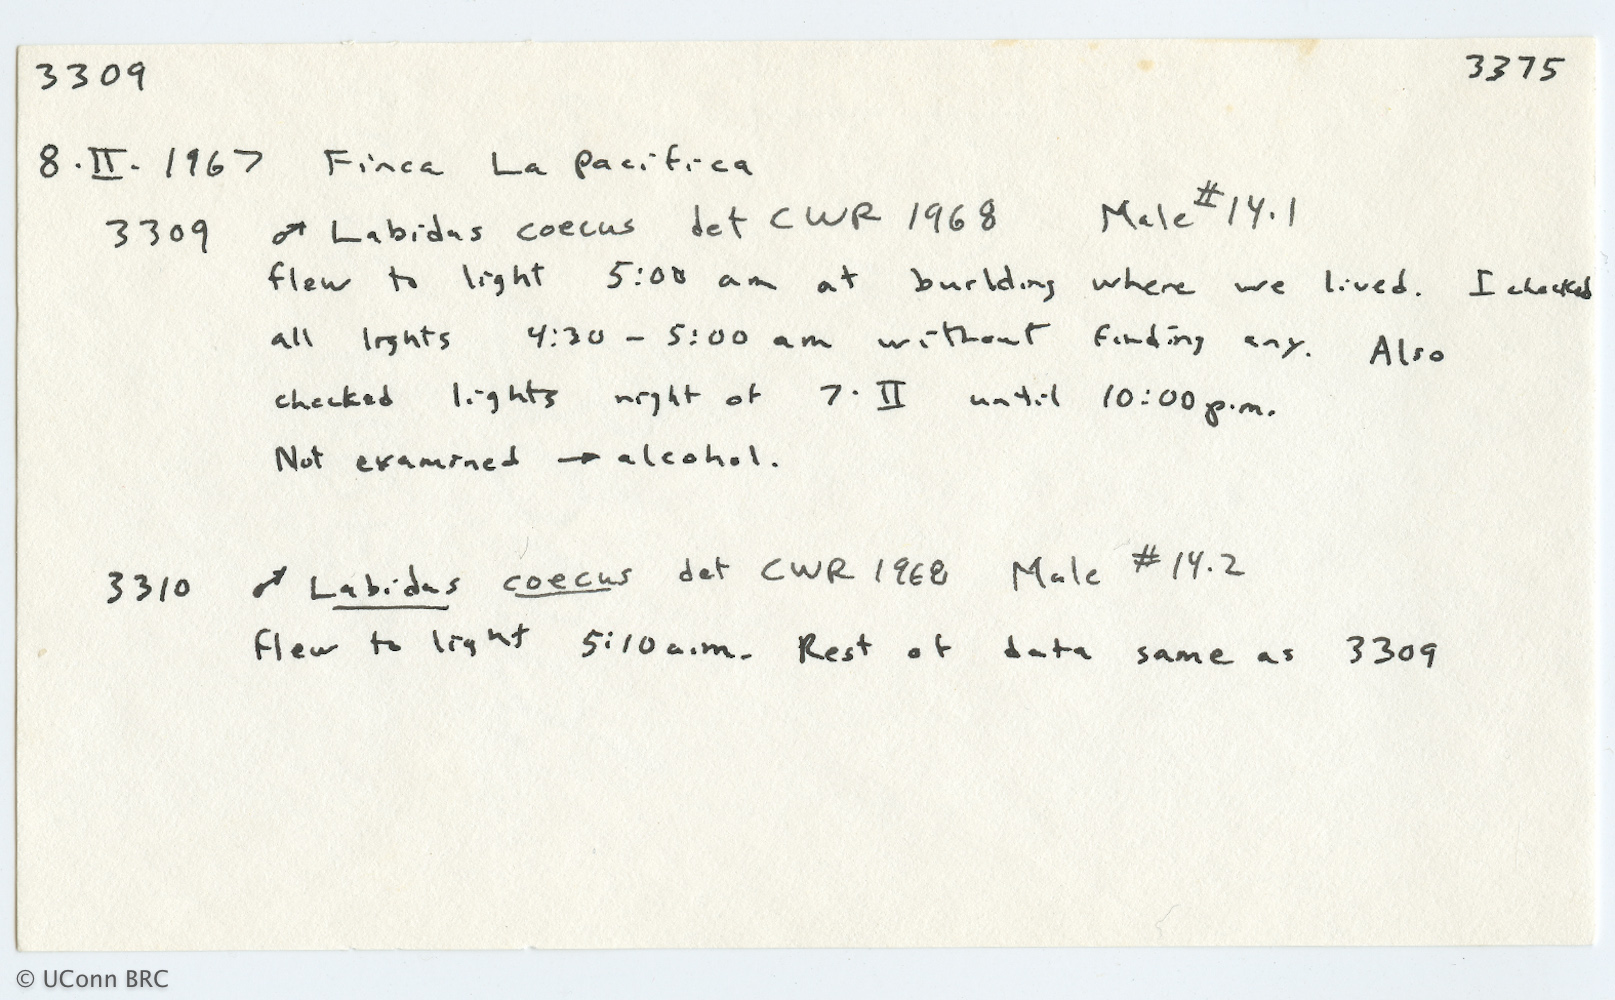 3309 3375
8.II.1967 Finca La Pacifica
3309 ♂ Labidus coecus det CWR 1968 Male #14.1
flew to light 5:00 am at building where we lived. I checked
all lights 4:30 – 5:00 am without finding any. Also
checked lights night of 7.II until 10:00 p.m.
Not examined → alcohol.
3310 ♂ Labidus coecus det CWR 1968 Male #14.2
flew to light 5:10 a.m. Rest of data same as 3309
© UConn BRC